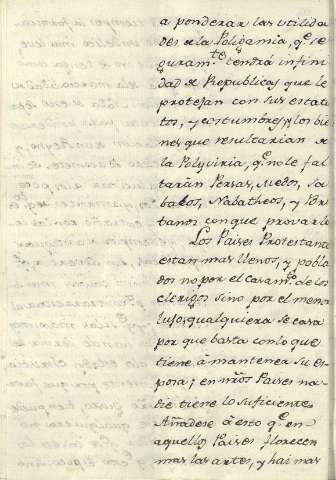 a ponderar las utilida
des de la Poligamia, q.e se
guram.te tendrá infini
dad de Republicas que le
protejan con sus estatu
tos, y costumbres, y los bie
nes que resultarian de
la Polyviria, q.e no le fal
tarán Persas, Medos, Sa
baios, Nabatheos, y
tanos con que provarlo
Los Paises Protestante
estan mas llenos, y pobla
dos no por el casam.to de los
clerigos sino por el menos
luso; qualquiera se casa
por que basta con lo que
tiene á mantener su es
posa; en nros Paises na
die tiene lo suficiente
Añadese á esto q.e en
aquellos Paises florecen
mas las artes, y hai mas